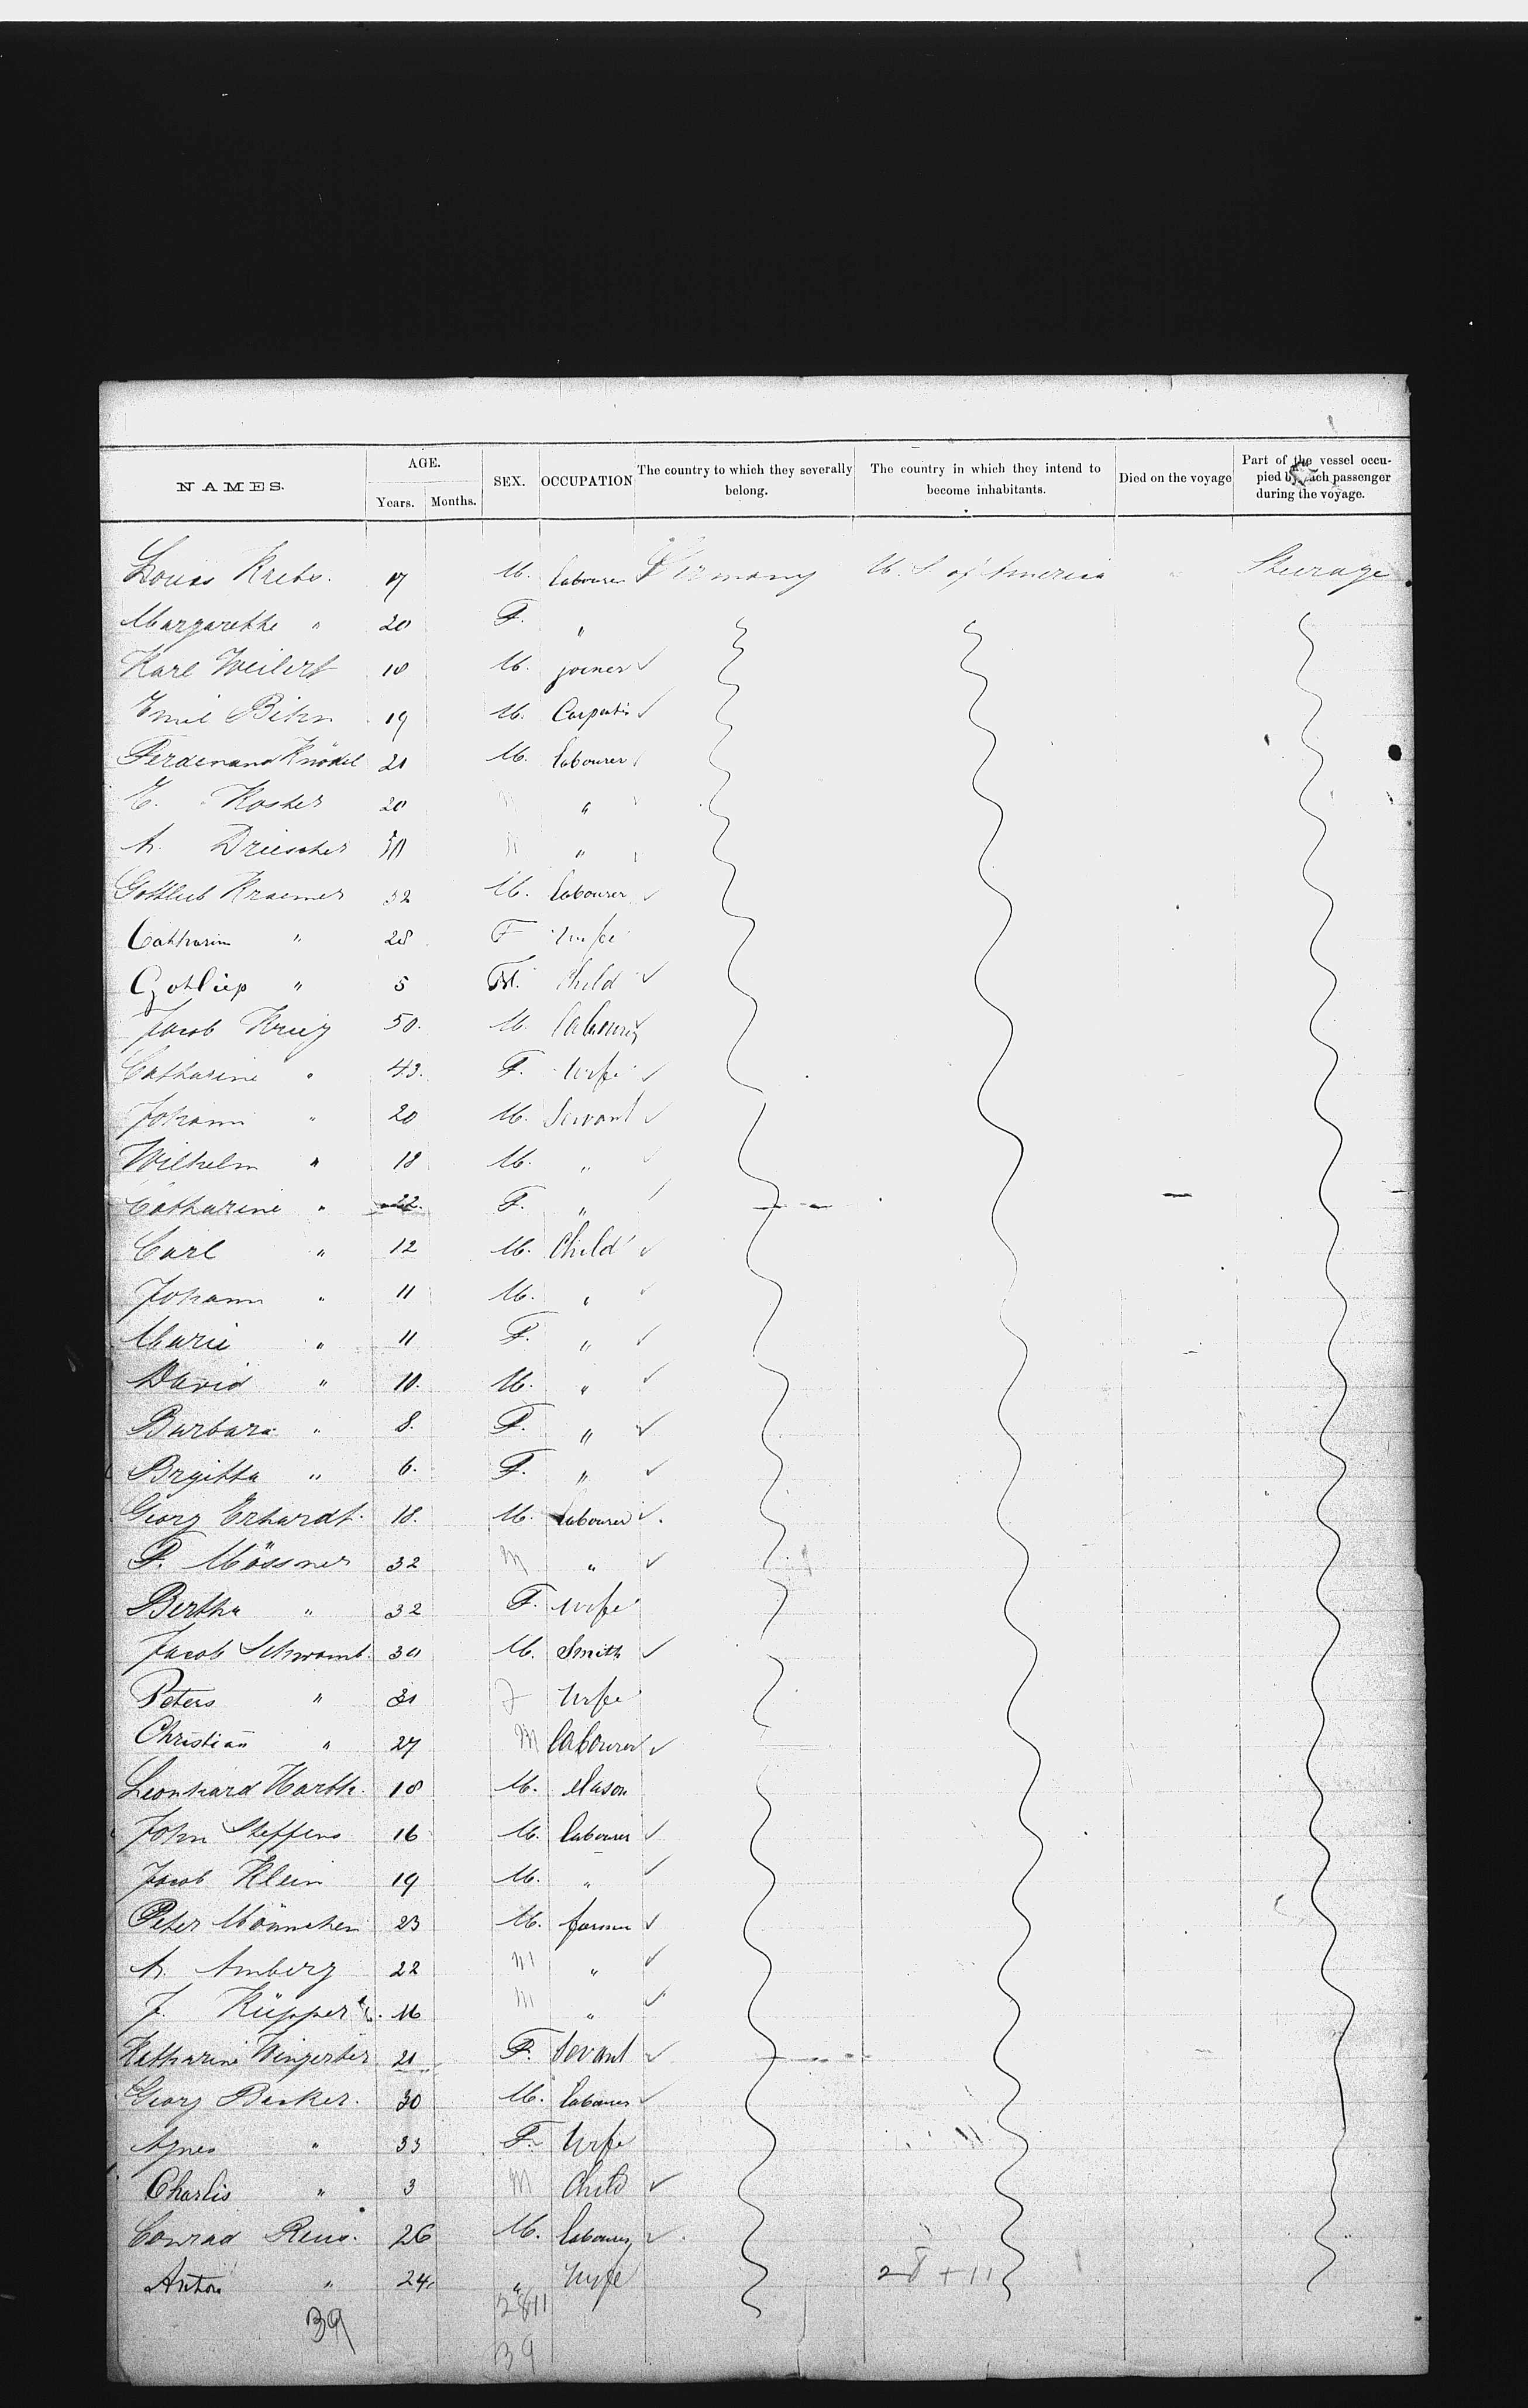 NAMES. AGE. Years. Months. SEX. OCCUPATION The country to which they severally belong. The country in which they intend to become inhabitants. Died on the voyage Part of the vessel occupied by each passenger during the voyage.
Louis Krebs. 17 M. labourer Germany U. S. of America Steerage
Margarethe " 20 F. "
Karl Weilert 18 M. joiner
Emil Bihn 19 M.
Ferdinand Knödel 21 M. labourer
E. Koster 20 M "
A. Driescher M "
Gottlieb Kraemer 32 M. labourer
Catharin " 28 F Wife
Gotliep " 5 M. Child
Jacob Krieg 50. M. labourer
Catharine " 43. F. Wife
Johann " 20 M. Servant
Wilhelm " 18 M. "
Catharine " 22. F. "
Carl " 12 M. Child
Johann " 11 M. "
Marie " 11 F. "
David " 10. M. "
Barbara " 8. F. "
Brgitta " 6. F. "
Georg Erhardt. 18. M. labourer
F. Mössner 32 M "
Bertha " 32 F. Wife
Jacob Schwamb. 30 M. Smith
Peters " 31 F Wife
Christian " 27 M labourer
Leonhard Harth. 18 M. Mason
John Steffens 16 M. labourer
Jacob Klein 19 M. "
Peter Mönnchen 23 M. farmer
A. Amberg 22 M "
J. Küpper 16 M "
Katharine Wingerter 21 F. Sevant
Georg Becker. 30 M. labourer
Agnes " 33 F. Wife
Charlis " 3 M Child
Conrad Reus. 26 M. labourer
Anton " 24. " Wife
28+11
39 28+11
39